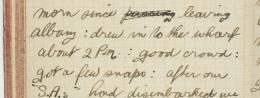 morn since leaving
albany : drew in to the wharf
about 2 P.m : good crowd :
got a few snaps : after our
"S.A.s" had disembarked we